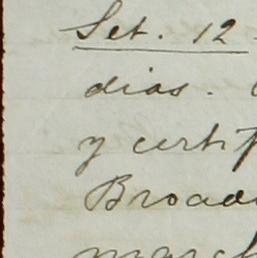 Set. 12
dias.
y certif
Broad
march